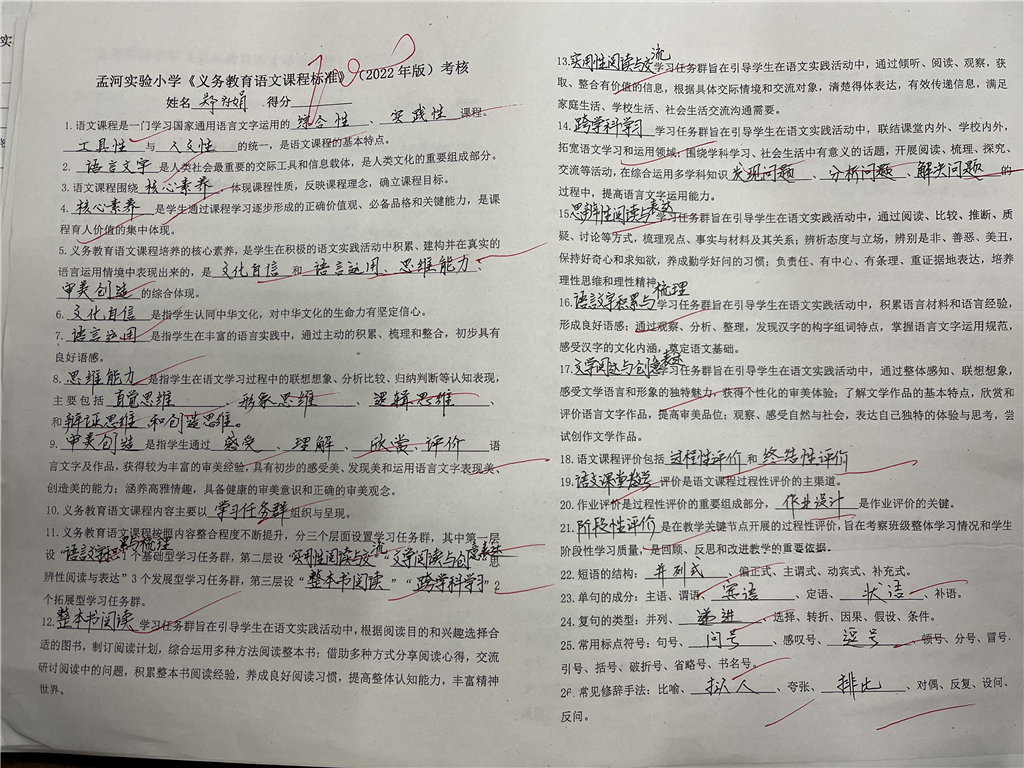 孟河实验小学《义务教育语文课程标准》（2022年版）考核
姓名 得分
1.语文课程是一门学习国家通用语言文字运用的 综合性 、 实践性 课程。
工具性 与 人文性 的统一，是语文课程的基本特点。
2. 语言文字 是人类社会最重要的交际工具和信息载体，是人类文化的重要组成部分。
3.语文课程围绕 核心素养 ，体现课程性质，反映课程理念，确立课程目标。
4. 核心素养 是学生通过课程学习逐步形成的正确价值观、必备品格和关键能力，是课
程育人价值的集中体现。
5.义务教育语文课程培养的核心素养，是学生在积极的语文实践活动中积累、建构并在真实的
语言运用情境中表现出来的，是 文化自信 和 语言运用、思维能力、
审美创造 的综合体现。
6. 文化自信 是指学生认同中华文化，对中华文化的生命力有坚定信心。
7. 语言运用 是指学生在丰富的语言实践中，通过主动的积累、梳理和整合，初步具有
良好语感。
8. 思维能力 是指学生在语文学习过程中的联想想象、分析比较、归纳判断等认知表现，
主要包括 直觉思维 、 形象思维 、 逻辑思维 、
和辩证思维 和创造思维。
9. 审美创造 是指学生通过 感受 、 理解 、 欣赏、评价 语
言文字及作品，获得较为丰富的审美经验，具有初步的感受美、发现美和运用语言文字表现美、
创造美的能力；涵养高雅情趣，具备健康的审美意识和正确的审美观念。
10. 义务教育语文课程内容主要以 学习任务群 组织与呈现。
11. 义务教育语文课程按照内容整合程度不断提升，分三个层面设置学习任务群，其中第一层
设“语言文字积累与梳理”1个基础型学习任务群，第二层设“实用性阅读与交流”“文学阅读与创意表达”“思
辨性阅读与表达”3个发展型学习任务群，第三层设“整本书阅读”“跨学科学习”2
个拓展型学习任务群。
12. 整本书阅读 学习任务群旨在引导学生在语文实践活动中，根据阅读目的和兴趣选择合
适的图书，制订阅读计划，综合运用多种方法阅读整本书；借助多种方式分享阅读心得，交流
研讨阅读中的问题，积累整本书阅读经验，养成良好阅读习惯，提高整体认知能力，丰富精神
世界。
13.实用性阅读与交流学习任务群旨在引导学生在语文实践活动中，通过倾听、阅读、观察，获
取、整合有价值的信息，根据具体交际情境和交流对象，清楚得体表达，有效传递信息，满足
家庭生活、学校生活、社会生活交流沟通需要。
14. 跨学科学习 学习任务群旨在引导学生在语文实践活动中，联结课堂内外、学校内外，
拓宽语文学习和运用领域；围绕学科学习、社会生活中有意义的话题，开展阅读、梳理、探究、
交流等活动，在综合运用多学科知识 发现问题 、 分析问题 、解决问题 的
过程中，提高语言文字运用能力。
15.思辨性阅读与表达学习任务群旨在引导学生在语文实践活动中，通过阅读、比较、推断、质
疑、讨论等方式，梳理观点、事实与材料及其关系；辨析态度与立场，辨别是非、善恶、美丑，
保持好奇心和求知欲，养成勤学好问的习惯；负责任、有中心、有条理、重证据地表达，培养
理性思维和理性精神。
16.语言文字积累与梳理学习任务群旨在引导学生在语文实践活动中，积累语言材料和语言经验，
形成良好语感；通过观察、分析、整理，发现汉字的构字组词特点，掌握语言文字运用规范，
感受汉字的文化内涵，奠定语文基础。
17.文学阅读与创意表达学习任务群旨在引导学生在语文实践活动中，通过整体感知、联想想象，
感受文学语言和形象的独特魅力，获得个性化的审美体验；了解文学作品的基本特点，欣赏和
评价语言文字作品，提高审美品位；观察、感受自然与社会，表达自己独特的体验与思考，尝
试创作文学作品。
18.语文课程评价包括 过程性评价 和 终结性评价
19. 语文课堂教学 评价是语文课程过程性评价的主渠道。
20.作业评价是过程性评价的重要组成部分， 作业设计 是作业评价的关键。
21. 阶段性评价 是在教学关键节点开展的过程性评价，旨在考察班级整体学习情况和学生
阶段性学习质量，是回顾、反思和改进教学的重要依据。
22. 短语的结构： 并列式 、偏正式、主谓式、动宾式、补充式。
23. 单句的成分：主语、谓语、 宾语 、定语、 状语 、补语。
24. 复句的类型：并列、 递进 、选择、转折、因果、假设、条件。
25. 常用标点符号：句号、 问号 、感叹号、 逗号 、顿号、分号、冒号、
引号、括号、破折号、省略号、书名号。
26. 常见修辞手法：比喻、 拟人 、夸张、 排比 、对偶、反复、设问、
反问。